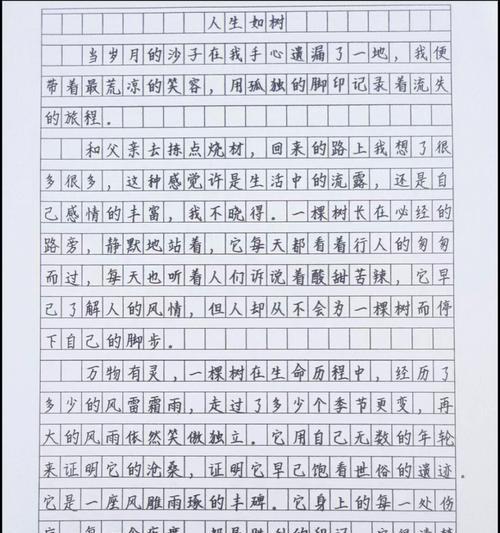 人生如树
当岁月的沙子在我手心遗漏了一地，我便
带着最荒凉的笑容，用孤独的脚印记录着流失
的旅程。
和父亲去拣点烧材，回来的路上我想了很
多很多，这种感觉许是生活中的流露，还是自
己感情的丰富，我不晓得。一棵树长在必经的
路旁，静默地站着，它每天都看着行人的匆匆
而过，每天也听着人们诉说着酸甜苦辣，它早
已了解人的风情，但人却从不会为一棵树而停
下自己的脚步。
万物有灵，一棵树在生命历程中，经历了
多少的风雷霜雨，走过了多少个季节更变，再
大的风雨依然笑傲独立。它用自己无数的年轮
来证明它的沧桑，证明它早已饱看世俗的遗迹。
它是一座风雕雨琢的丰碑。它身上的每一处伤